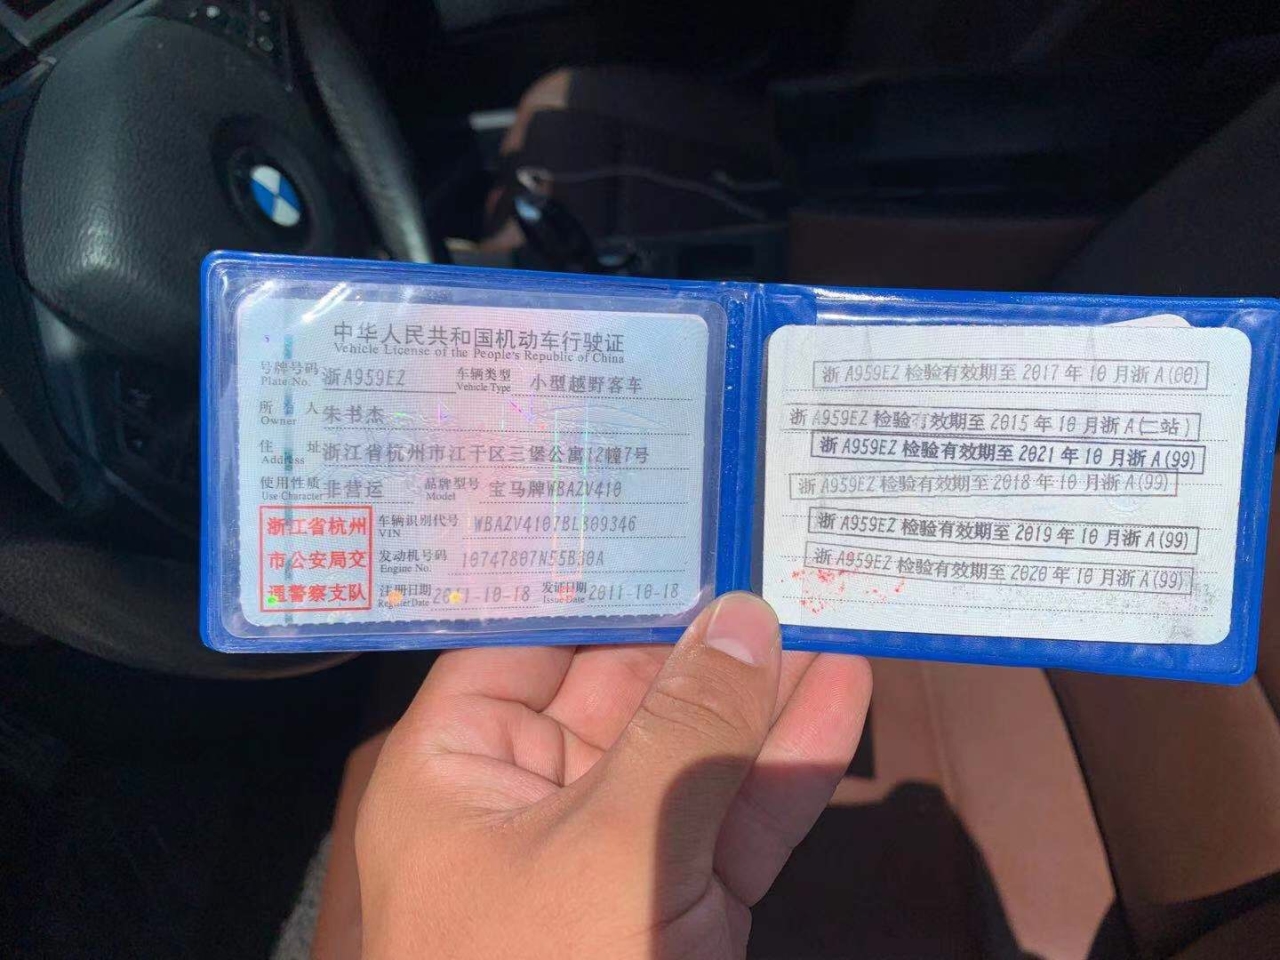 中华人民共和国机动车行驶证
Vehicle License of the People's Republic of China
号牌号码 浙A959EZ 车辆类型 小型越野客车
Plate No. Vehicle Type
所有人 朱书杰
Owner
住址 浙江省杭州市江干区三堡公寓12幢7号
Address
使用性质 非营运 品牌型号 宝马牌WBAZV410
Use Character Model
浙江省杭州
市公安局交
通警察支队
车辆识别代号 WBAZV4107BL809346
VIN
发动机号码 10747807N55B30A
Engine No.
注册日期 2011-10-18 发证日期 2011-10-18
Register Date Issue Date
浙A959EZ检验有效期至2017年10月浙A(00)
浙A959EZ检验有效期至2015年10月浙A(二站)
浙A959EZ检验有效期至2021年10月浙A(99)
浙A959EZ检验有效期至2018年10月浙A(99)
浙A959EZ检验有效期至2019年10月浙A(99)
浙A959EZ检验有效期至2020年10月浙A(99)